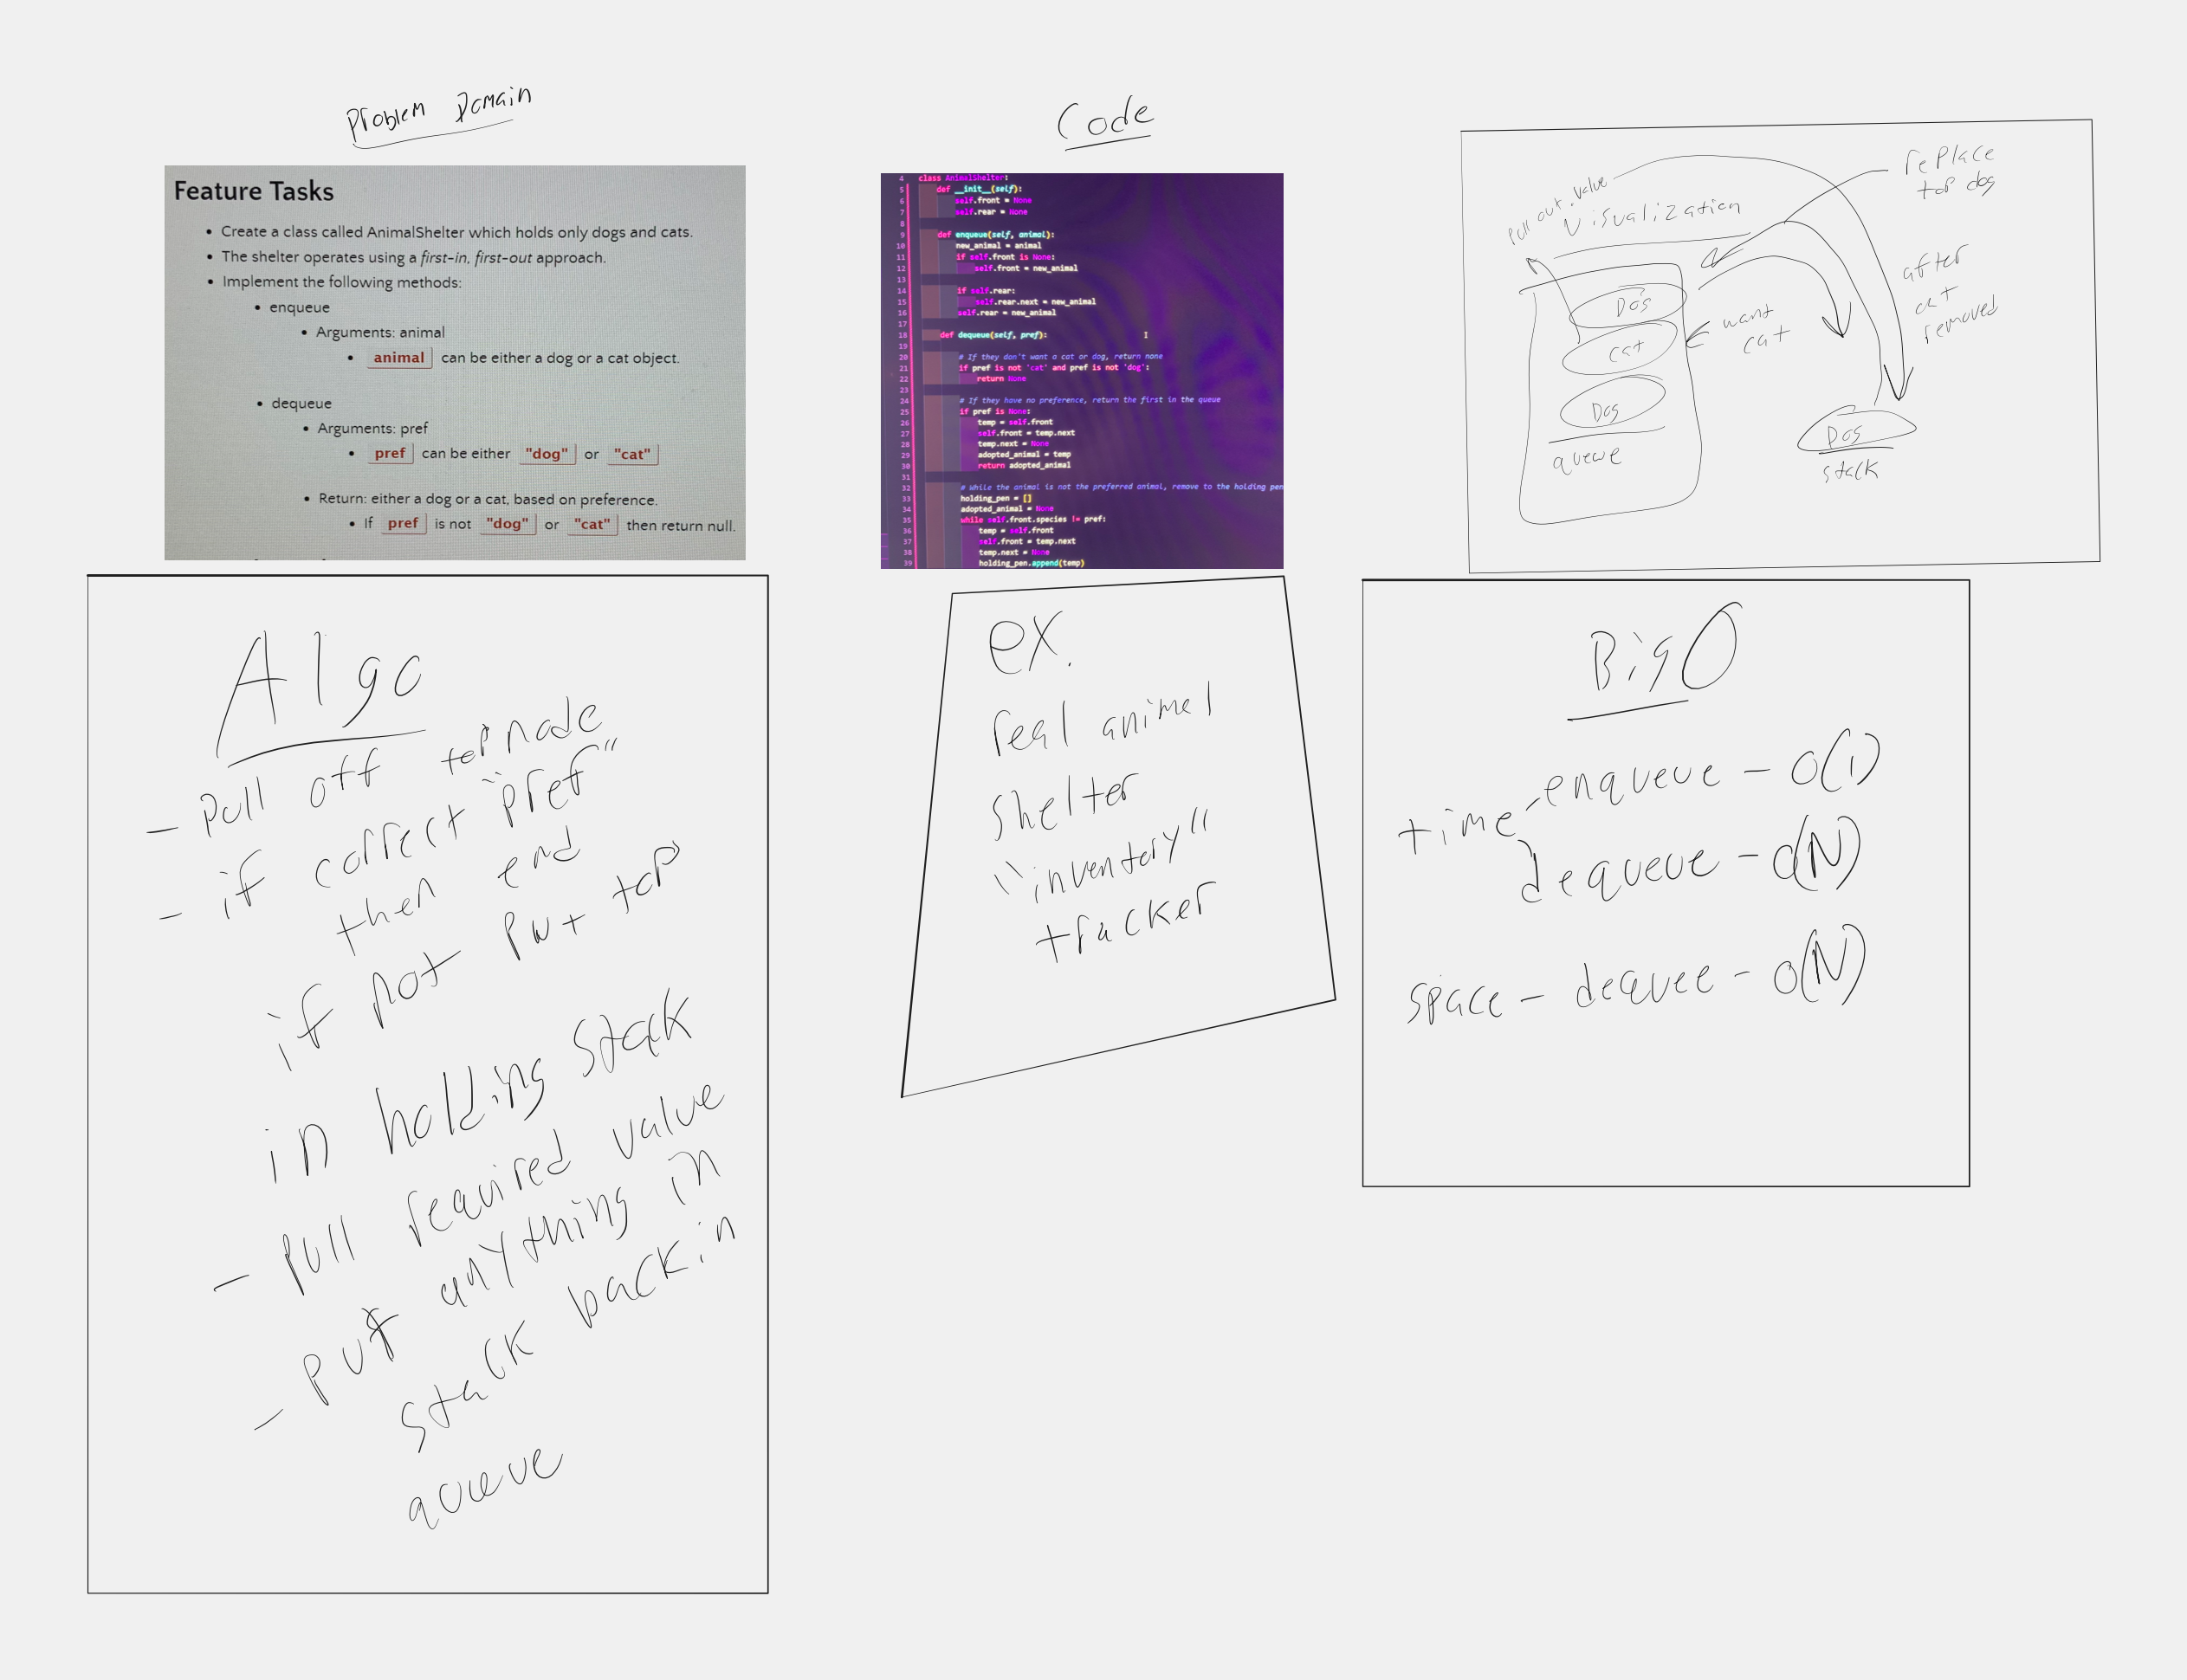 Problem Domain
Feature Tasks
• Create a class called AnimalShelter which holds only dogs and cats.
• The shelter operates using a first-in, first-out approach.
• Implement the following methods:
• enqueue
• Arguments: animal
• animal can be either a dog or a cat object.
• dequeue
• Arguments: pref
• pref can be either "dog" or "cat"
• Return: either a dog or a cat, based on preference.
• If pref is not "dog" or "cat" then return null.
Code
4 class AnimalShelter:
5 def __init__(self):
6 self.front = None
7 self.rear = None
8
9 def enqueue(self, animal):
10 new_animal = animal
11 if self.front is None:
12 self.front = new_animal
13
14 if self.rear:
15 self.rear.next = new_animal
16 self.rear = new_animal
17
18 def dequeue(self, pref):
19
20 # If they don't want a cat or dog, return none
21 if pref is not 'cat' and pref is not 'dog':
22 return None
23
24 # If they have no preference, return the first in the queue
25 if pref is None:
26 temp = self.front
27 self.front = temp.next
28 temp.next = None
29 adopted_animal = temp
30 return adopted_animal
31
32 # While the animal is not the preferred animal, remove to the holding pen
33 holding_pen = []
34 adopted_animal = None
35 while self.front.species != pref:
36 temp = self.front
37 self.front = temp.next
38 temp.next = None
39 holding_pen.append(temp)
Pull out value
Visualization
replace
top dog
Dog
Cat
Dog
queue
want
cat
after
cat
removed
Dog
stack
Algo
- Pull off top node
- if correct "pref"
then end
if not put top
in holding stack
- Pull required value
- put anything in
stack back in
queue
ex.
real animal
shelter
"inventory"
tracker
Big O
time - enqueue - O(1)
dequeue - O(N)
space - dequee - O(N)